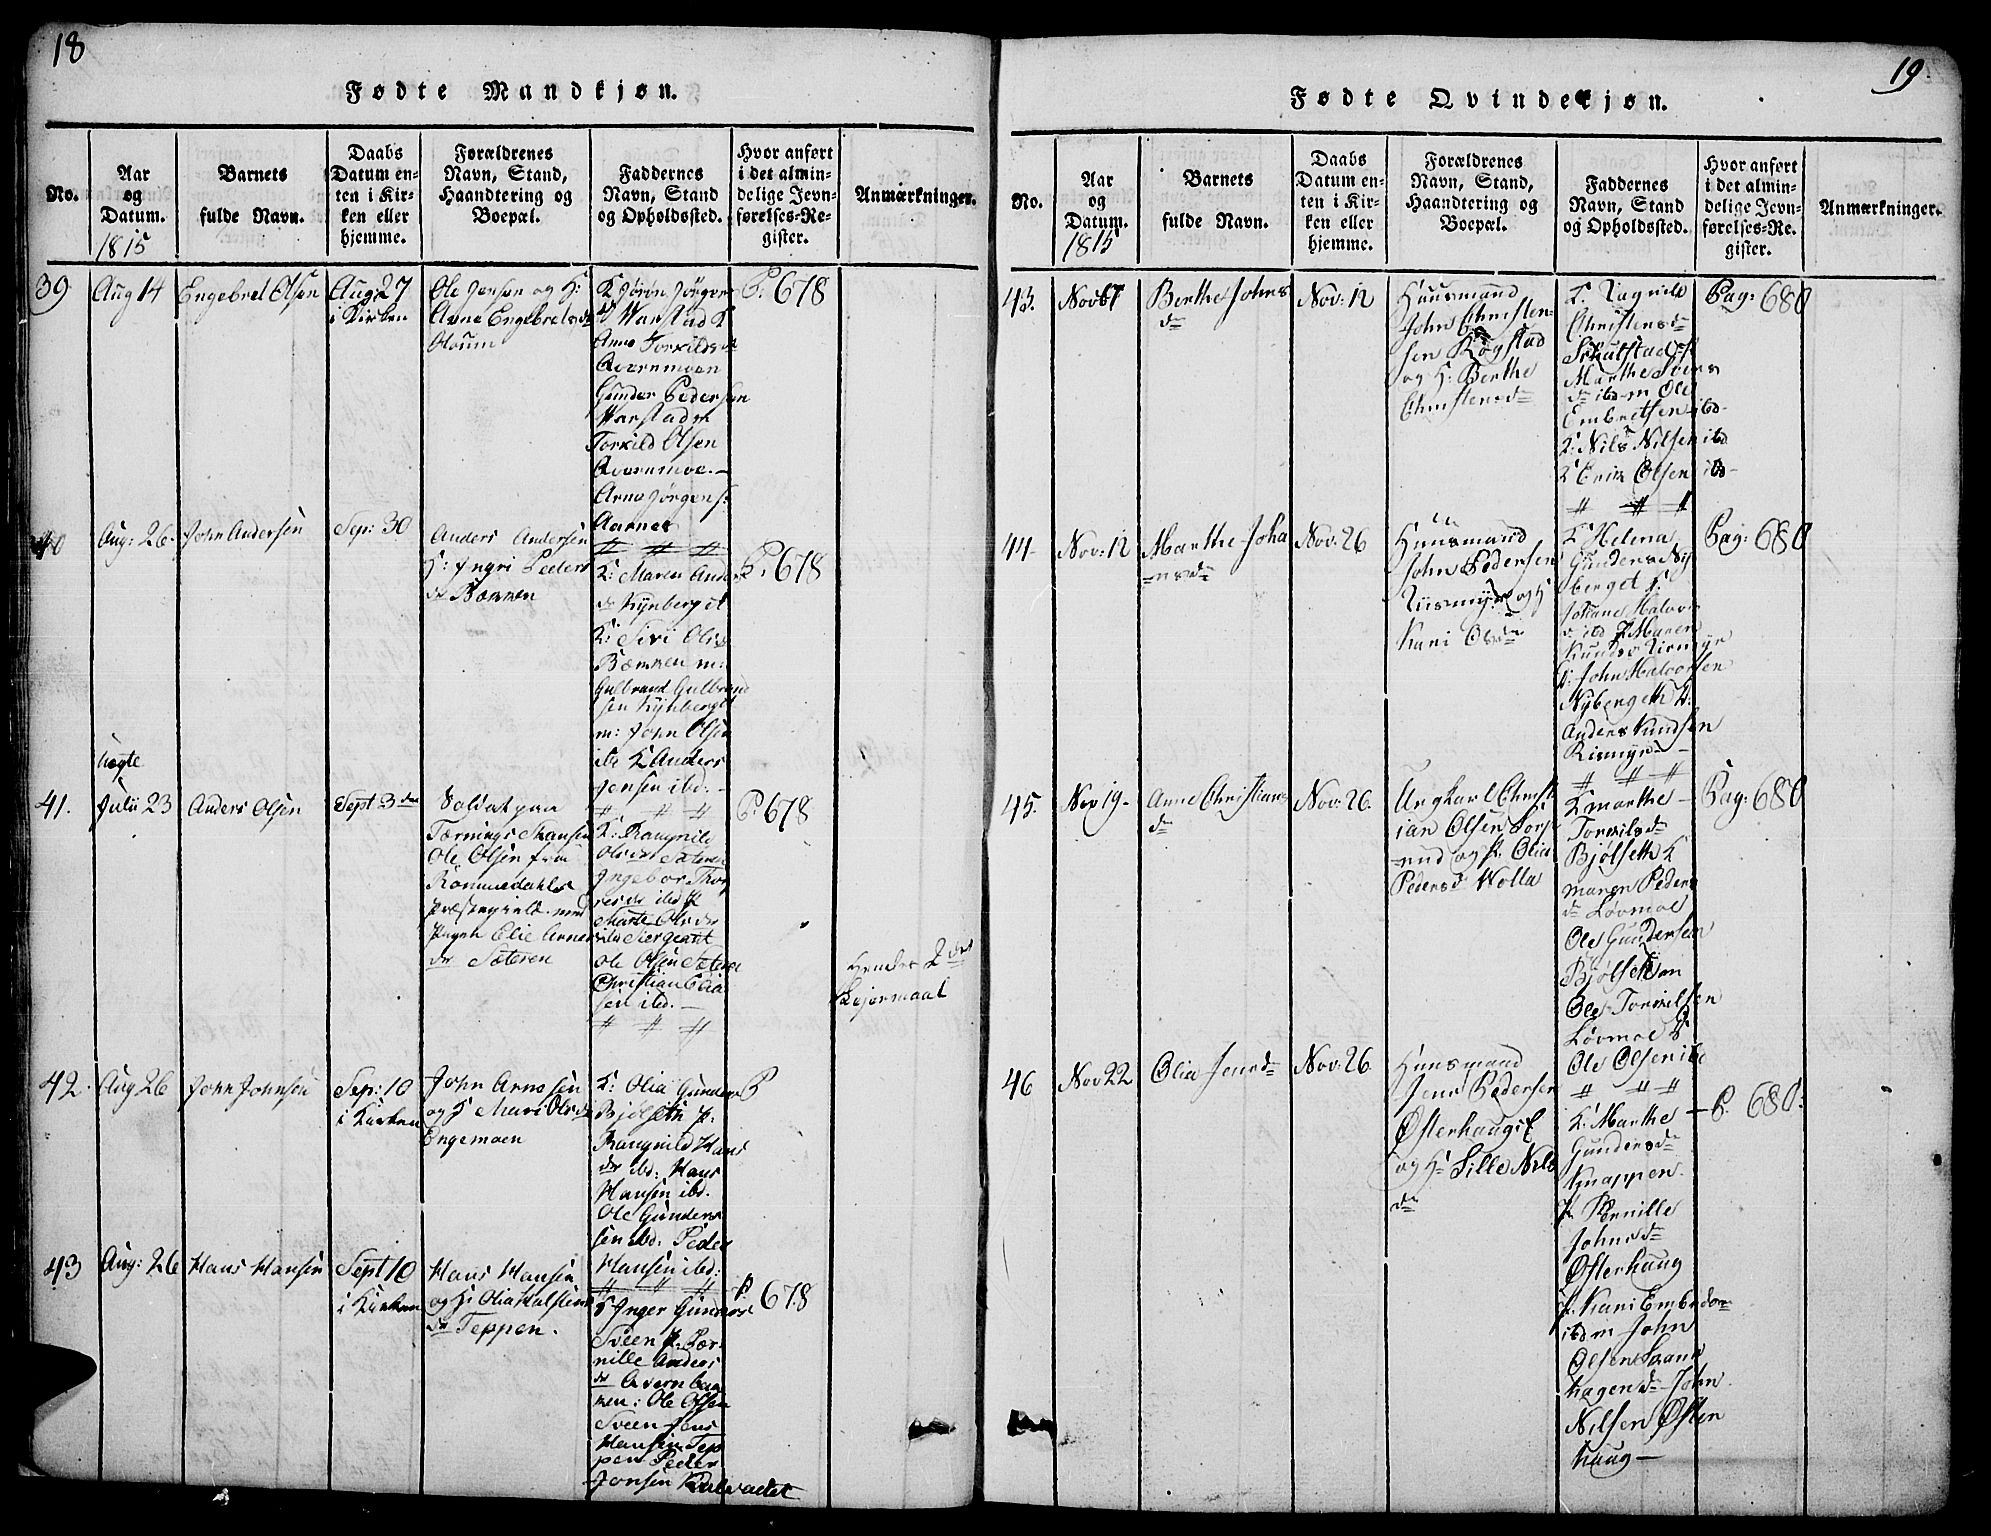 18
Fødte Mandkjøn.
No.
Aar
og
Datum.
1815
Barnets
fulde Navn.
Daabs
Datum en-
ten i Kir-
ken eller
hjemme.
Forældrenes
Navn, Stand,
Haandtering og
Boepæl.
Faddernes
Navn, Stand
og Opholdssted.
Hvor anført
i det almin-
delige Jevn-
førelses-Re-
gister.
Anmærkninger.
39
Aug 14
Engebret Olsen
Aug 27
i Kirken
Ole Jensen og H:
Anne Engebretsdr
Oloum
Warstad K
Anne Torkildsdr
Qvernmoen
Gunder Pedersen
Warstad m
Torkild Olsen
Qvernmoe.-
Arne Jörgens:
Aarnes
# # #
P. 678
40
Aug: 26.
John Andersen
Sep: 30
Anders Andersen
H: Ingri Peders
dr Bæmmen
K: Maren Anders
dr Kynberget
K: Siri Olsdr
Bæmmen m:
Gulbrand Gulbrand
sen Kynberget
m: John Olsen
ibd K Anders
Jensen ibd:-
# # #
P. 678
41.
uægte
Julii 23
Anders Olsen
Sept: 3 die
Soldat paa
Tærnings Skansen
Ole Olsen fra
Rommedahls
Præstegield med
Pigen Elie Arnes
dr Sæteren
K: Rangnild
Olsdr Sæteren
Ingebor Thor
resdr ibd P
Marte Olsdr
ibd Siergeant
Ole Olsen Sæteren
Christian Elia
sen ibd.-
# # #
P. 678
Hendes 2 det
Lejermaal
42.
Aug 26
John Johnsen
Sep: 10
i Kirken
John Arnesen
og H Mari Olsdr
Engemoen
K: Olia Gunders
Bjölseth P:
Rangnild Hans
dr ibd: Hans
Hansen ibd.
Ole Gunder
sen ibd. Peder
Hansen ibd:
# # #
P
43
Aug: 26
Hans Hansen
Sept 10
i Kirken
Hans Hansen
og H: Olia Halstens
dr Teppen.
K Inger Gunders
Sveen P. Per-
nille Anders
dr Qvernbag
ken: Ole Olsen
Sveen Jens
Hansen Tep
pen Peder
Jonsen Kalvadet
P. 678
19
Fødte Qvindekjøn.
No.
Aar
og
Datum.
1815
Barnets
fulde Navn.
Daabs
Datum en-
ten i Kir-
ken eller
hjemme.
Forældrenes
Navn, Stand,
Haandtering og
Boepæl.
Faddernes
Navn, Stand
og Opholdssted.
Hvor anført
i det almin-
delige Jevn-
førelses-Re-
gister.
Anmærkninger.
43.
Berthe Johns
dr
Nov: 12
Huusmand
John Christen-
sen Rögstad
og H: Berthe
Christensdr
K. Ragnild
Christensdr
Skutstad P
Marthe Ivers
dr ibd-m Ole
Embretsen ibd-
K: Nils Nilsen ibd
K Erik Olsen ibd-
# # #
Pag: 680
44-
Nov: 12
Marthe Joha
-nsdr
Nov: 26
Huusmand
John Pedersen
Riismyr og H
Kari Olsdr
K Helena
Gunders Ny
berget K
Johane Halvors
d ibd P Maren
Knudsd Rismyr
K: John Halvorsen
Nyberget K.
Anders Knudsen
Rismyr-
# # #
Pag: 680
45.
Nov 19-
Anne Christians
dr
Nov: 26.
Ungkarl Christ
ian Olsen Sors-
-nud og P. Olia
Pedersd Wolla
K marthe -
Torkilsdr
Bjølseth K
maren Peders
dr Lövmoe
Ole Gundersen
Bjølseth m
Ole Torkilsen
Lövmoe K
Ole Olsen ibd
# # #
Pag: 680
46
Nov 22
Olia Jensdr
Nov: 26
Huusmand
Jens Pedersen
Österhaugs
og H Sille Nils
dr
K: Marthe -
Gundersdr
Knappen.
P. Pernille
Johnsdr
Österhaug
P. Kari Embrdr
ibd m John
Olsen Svane
hagen dr- John
Nilsen Östen
haug-
P. 680.